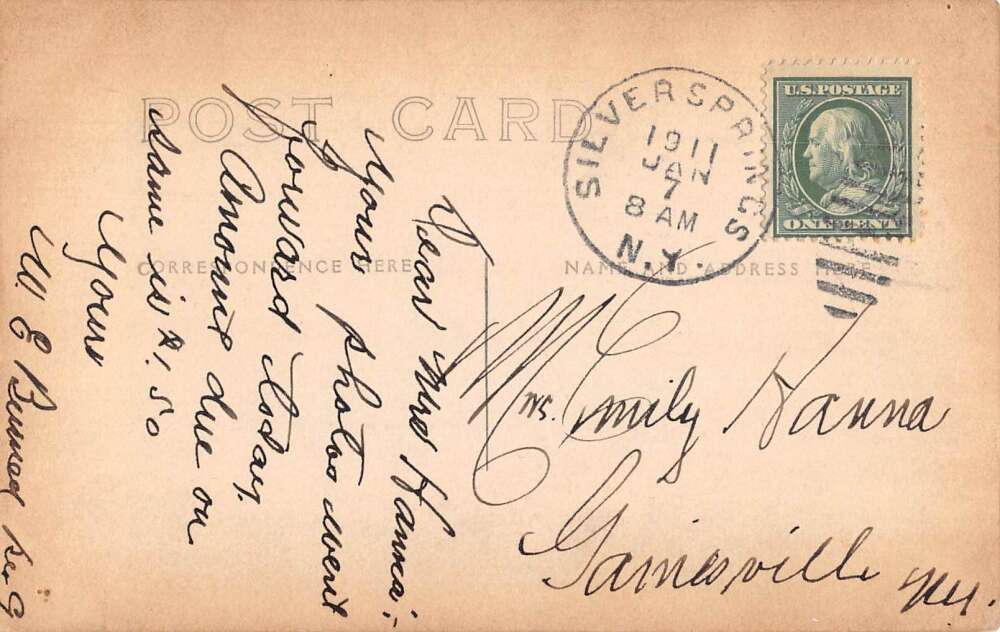 POST CARD
CORRESPONDENCE HERE
NAME AND ADDRESS HERE
SILVER SPRINGS
1911
JAN
7
8 AM
N.Y.
U.S. POSTAGE
ONE CENT
Dear Mrs Hanna:-
Your photos went
forward today.
Amount due on
same is $1.50
Yours
W. E.
Mrs. Emily Hanna
Gainesville
N.Y.